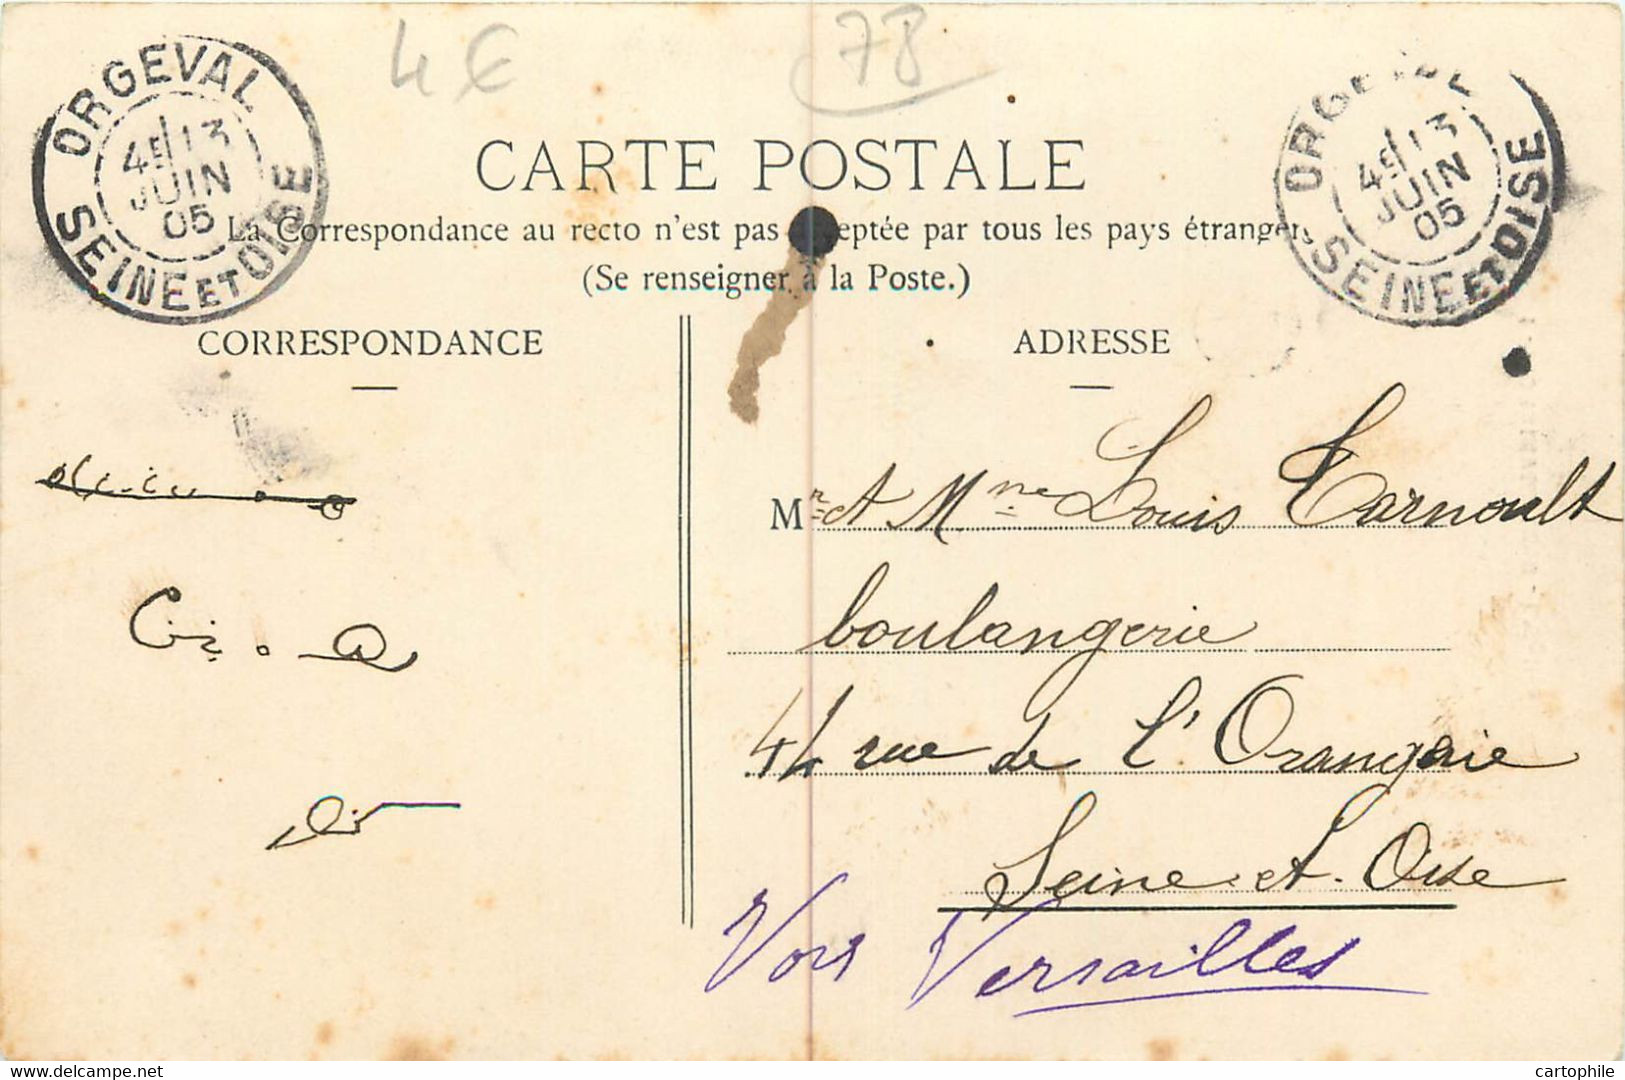 4 €
78
ORGEVAL
4E 13
JUIN
05
SEINE ET OISE
ORGEVAL
4E 13
JUIN
05
SEINE ET OISE
CARTE POSTALE
La Correspondance au recto n'est pas acceptée par tous les pays étrangers
(Se renseigner à la Poste.)
CORRESPONDANCE
ADRESSE
Mr et Mme Louis Ternoult
boulangerie
44 rue de l'Orangerie
Seine et Oise
Voir Versailles
www.delcampe.net
cartophile